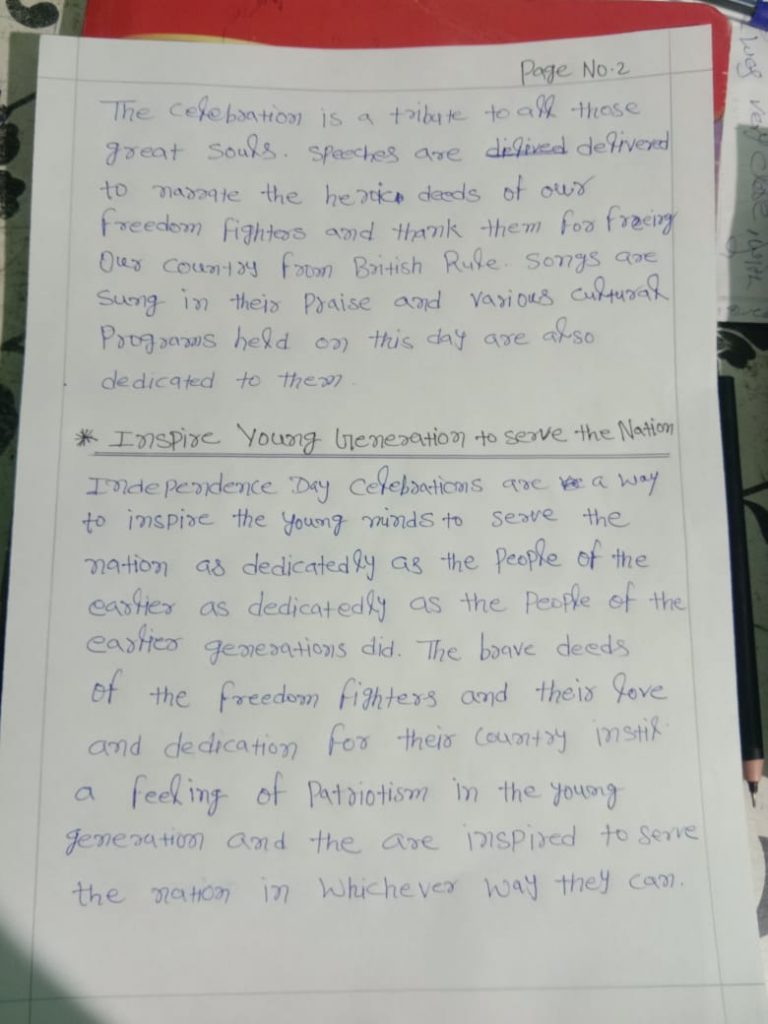 Page No.2
The celebration is a tribute to all those
great souls. speeches are delived delivered
to narrate the heroic deeds of our
freedom fighters and thank them for freeing
Our country from British Rule. Songs are
sung in their Praise and various cultural
Programs held on this day are also
dedicated to them.
* Inspire Young Generation to serve the Nation
Independence Day celebrations are a way
to inspire the young minds to serve the
nation as dedicatedly as the People of the
earlier as dedicatedly as the People of the
earlier generations did. The brave deeds
of the freedom fighters and their love
and dedication for their country instil
a feeling of Patriotism in the young
generation and the are inspired to serve
the nation in Whichever way they can.